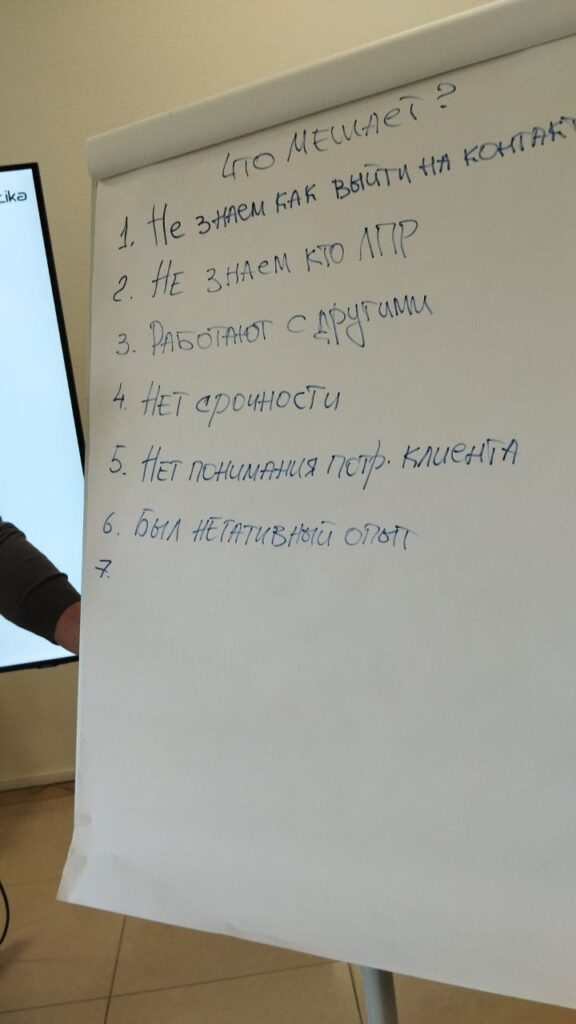 tika
Что мешает?
1. Не знаем как выйти на контакт
2. Не знаем кто ЛПР
3. Работают с другими
4. Нет срочности
5. Нет понимания потр. клиента
6. Был негативный опыт
7.